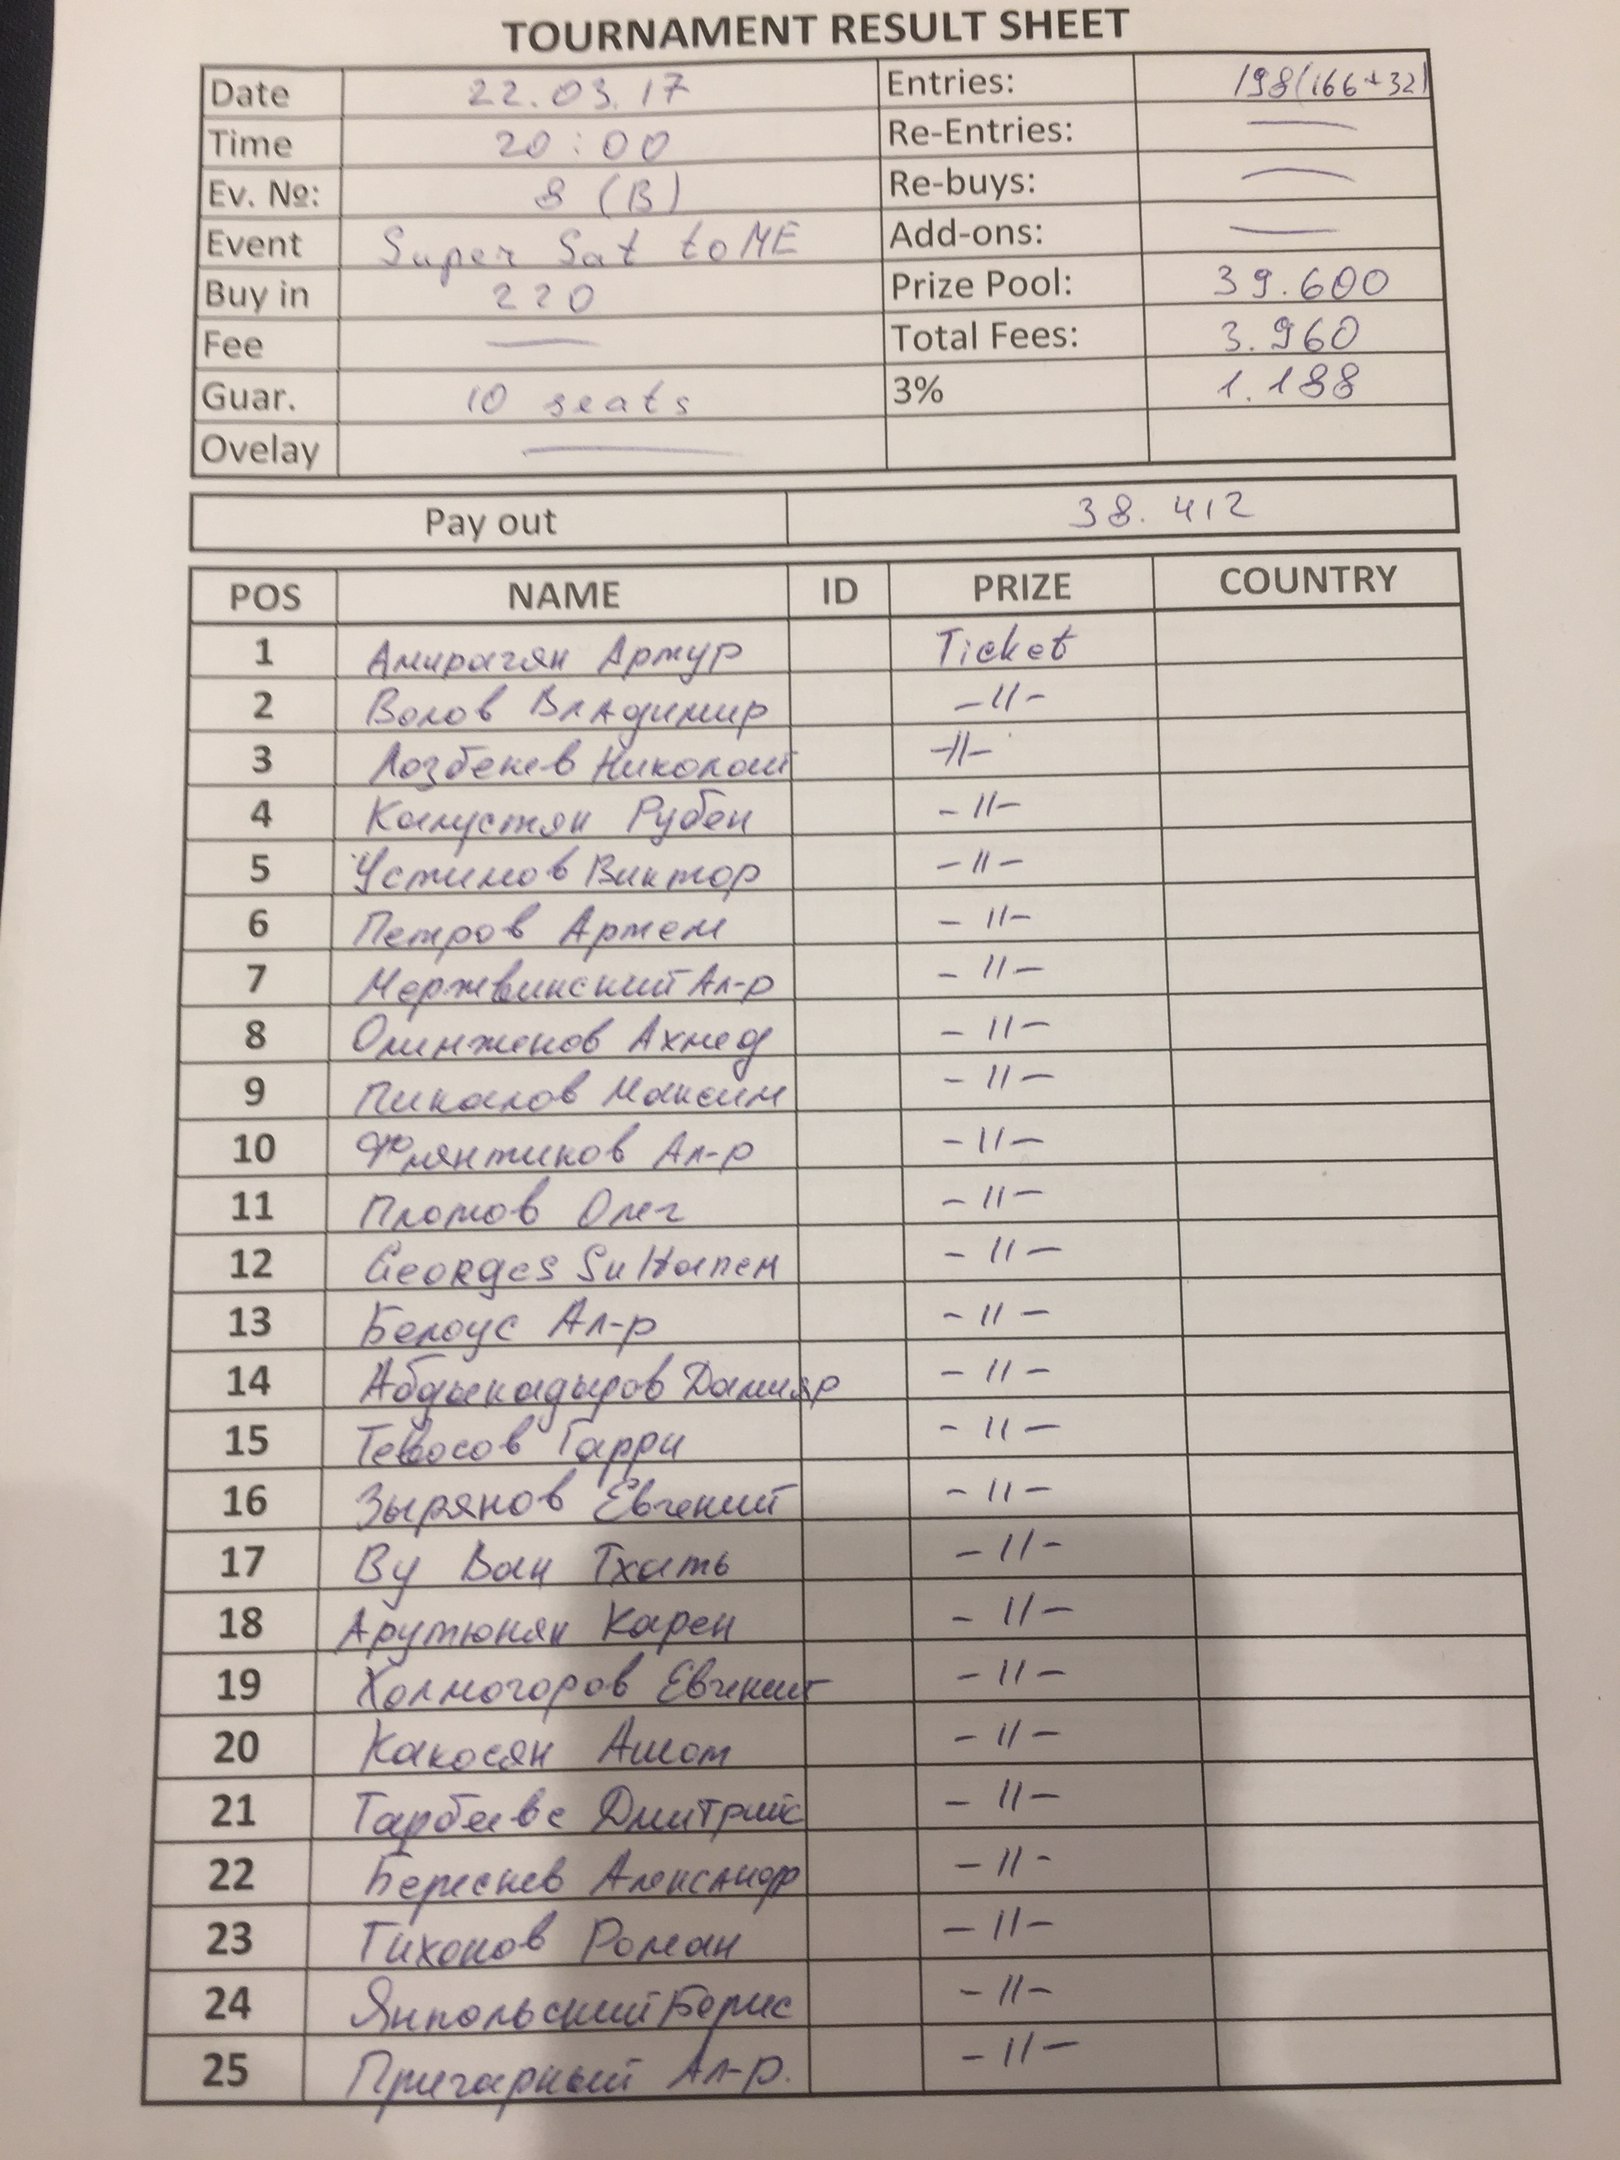 TOURNAMENT RESULT SHEET
Date 22.03.17 Entries: 198(166+32)
Time 20:00 Re-Entries: —
Ev. №: 8 (B) Re-buys: —
Event Super Sat to ME Add-ons: —
Buy in 220 Prize Pool: 39.600
Fee — Total Fees: 3.960
Guar. 10 seats 3% 1.188
Ovelay —
Pay out 38.412
POS NAME ID PRIZE COUNTRY
1 Амирагян Артур Ticket
2 Волов Владимир -11-
3 Лозбенев Николай -11-
4 Капустян Рубен -11-
5 Устимов Виктор -11-
6 Петров Артем -11-
7 Мержвинский Ал-р -11-
8 Олинженов Ахмед -11-
9 Пикалов Максим -11-
10 Ал-р -11-
11 Плотов Олег -11-
12 Georges -11-
13 Белоус Ал-р -11-
14 Дамияр -11-
15 Тевосов Гарри -11-
16 Зырянов Евгений -11-
17 Ву Ван Тхать -11-
18 Арутюнян Карен -11-
19 Холмогоров Евгений -11-
20 Какосян Ашот -11-
21 -11-
22 Береснев Александр -11-
23 Тихонов Роман -11-
24 Янпольский Борис -11-
25 Пригарный Ал-р. -11-